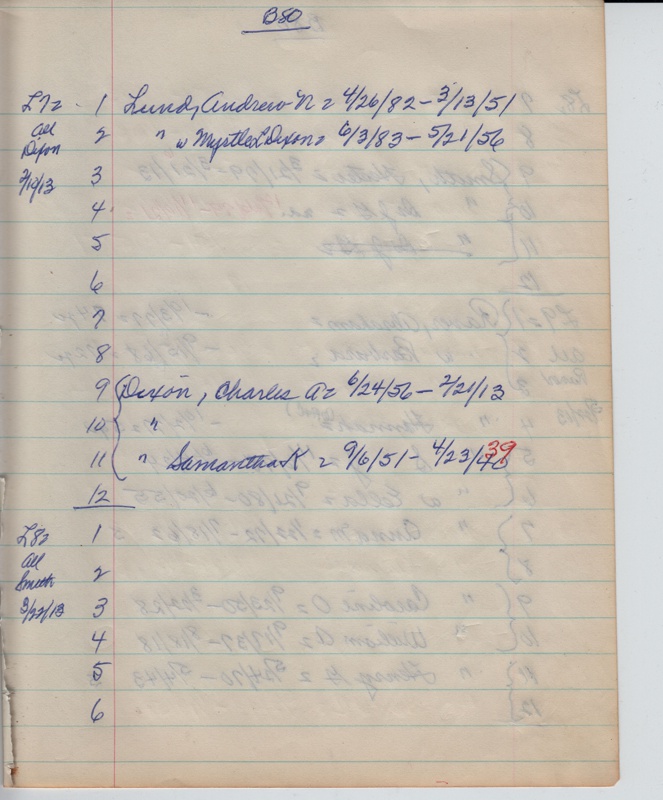 B50
L7= 1 Lund, Andrew N = 4/26/82 – 3/13/51
All 2 " w Myrtle L Dixon = 6/3/83 – 5/21/56
Dixon
2/10/13 3
4
5
6
7
8
9 Dixon, Charles A = 6/24/56 – 2/21/13
10 "
11 " Samantha K = 9/6/51 – 4/23/39
12
L8= 1
All
Smith 2
3/22/13 3
4
5
6